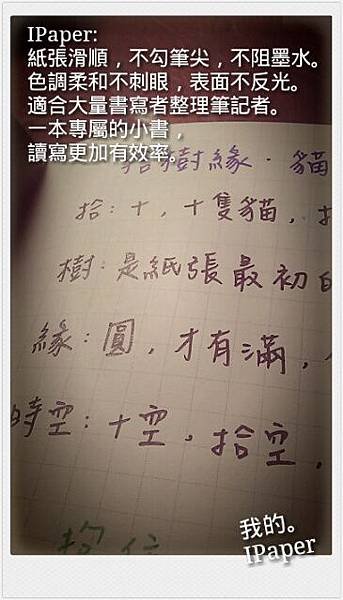 IPaper:
紙張滑順，不勾筆尖，不阻墨水。
色調柔和不刺眼，表面不反光。
適合大量書寫者整理筆記者。
一本專屬的小書，
讀寫更加有效率。
拾樹緣．貓
拾：十，十隻貓，
樹：是紙張最初的
緣：圓，才有滿，
時空：十空，拾空，
我的。
IPaper